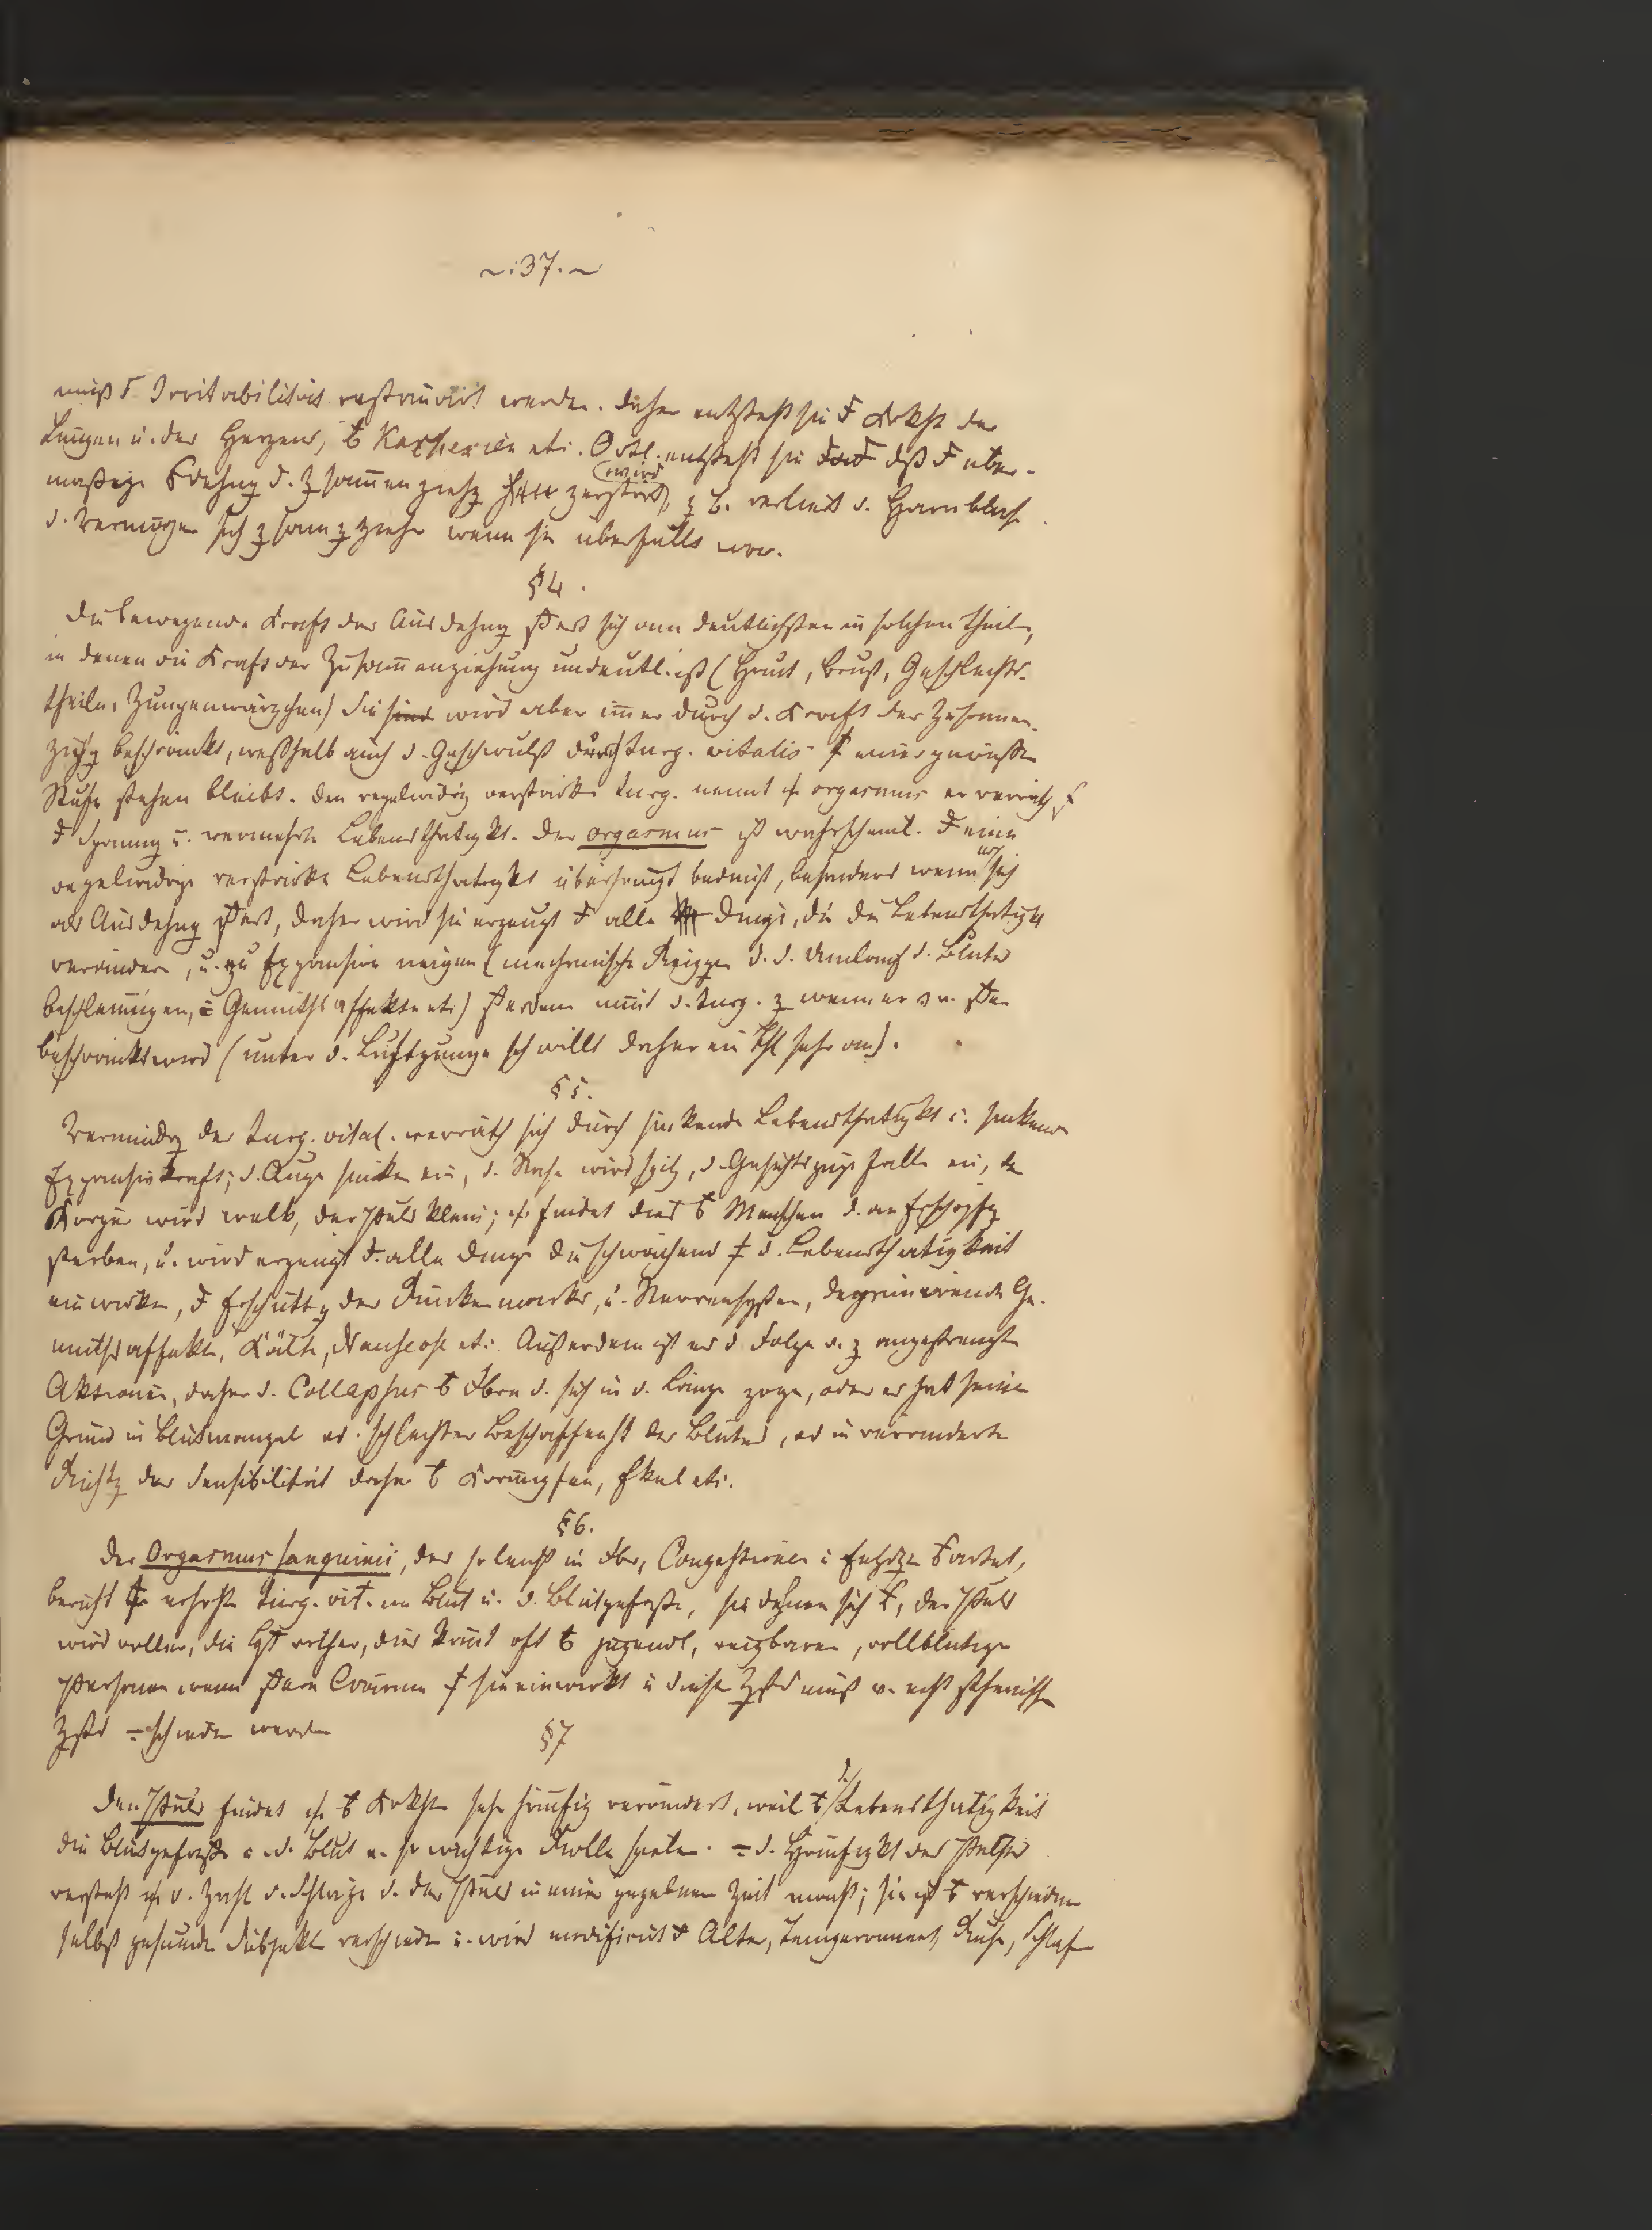 ~:37.~
muß d. Irritabilität restaurirt werden. daher entsteht sie d Krkht der
Lungen u. des Herzens, b Kachexien etc. Oertl. entsteht sie daß d über-
mäßige dehng d. zsammenziehg zerstört wird, z B. verliert d. Harnblase
d. Vermögen sich z samzziehe wenn sie überfüllt war.
§4.
Die bewegende Kraft der Ausdehng äußert sich am deutlichsten in solchen Theilen,
in denen die Kraft der Zusammenziehung undeutl. ist (Haut, Brust, Geschlechts-
theile, Zungenwärzchen) Sie sind wird aber immer durch d. Kraft der Zusammen-
ziehg beschränkt, weßhalb auch d. Geschwulst durch turg. vitalis auf einer gewissen
Stufe stehen bleibt. Den regelwidrig verstärkten turg. nennt orgasmus er verräth
d Spannung u. vermehrte Lebensthätigkt. Der orgasmus ist wahrscheinl. d eine
regelwidrige verstärkte Lebensthätigkt überhaupt bedingt, besonders wenn sich
als Ausdehng äußert, daher wird sie erzeugt d alle Dinge, die die Lebensthätigkt
verändern, u. zu Expansion neigen (mechanische Reizgen d. d. Umlauf d. Blutes
beschleunigen, Gemüthsaffekte etc) außerdem nimt d. turg. z wenn er
beschränkt wird (unter d. Luftpumpe schwillt daher ein Thl sehr an).
§5.
Vermindrg der turg. vital. verräth sich durch sinkende Lebensthätigkt u. sinkende
Expansivkraft; d. Auge sinken ein, d. Nase wird spitz, d. Gesichtszüge fallen ein, der
Körper wird welk, der Puls klein; findet dies b Menschen d. an Erschöpfg
sterben, u. wird erzeugt d. alle Dinge die schwächend auf d. Lebensthätigkeit
einwirken, d Erschüttg des Rückenmarks, u. Nervensystem, deprimirende Ge-
müthsaffekte, Kälte, Nauseose etc. Außerdem ist er d Folge v. z angestrengten
Aktionen, daher d. Collapsus b Fbrn d. sich in d. Länge zogen, oder er hat seinen
Grund in Blutmangel od. schlechter Beschaffenht des Blutes, od in veränderter
Richtg der Sensibilität daher b Krämpfen, Ekel etc.
§6.
Der Orgasmus sanguinis, der so leicht in Fbr, Congestionen u Entzdg ausartet,
beruht auf erhöhten turg. vit. im Blut u. d. Blutgefäße, sie dehnen sich aus, der Puls
wird voller, die Hpt röther, dies komt oft b jugendl, reizbaren, vollblütigen
Personen wenn auf sie einwirkt u dieser Zstd muß v. ächt sthenischen
Zstd schieden werden
§7
Den Puls findet b Krkhten sehr häufig verändert, weil b d. Lebensthätigkeit
die Blutgefäße u. d. Blut e. so wichtige Rolle spielen. d. Häufigkt des Pulses
versteht d. Zahl d. Schläge d. der Puls in einer gegebenen Zeit macht; sie ist b verschiedenen
selbst gesunden Subjekten verschieden u. wird modificirt d Alter, Temperament, Ruhe, Schlaf